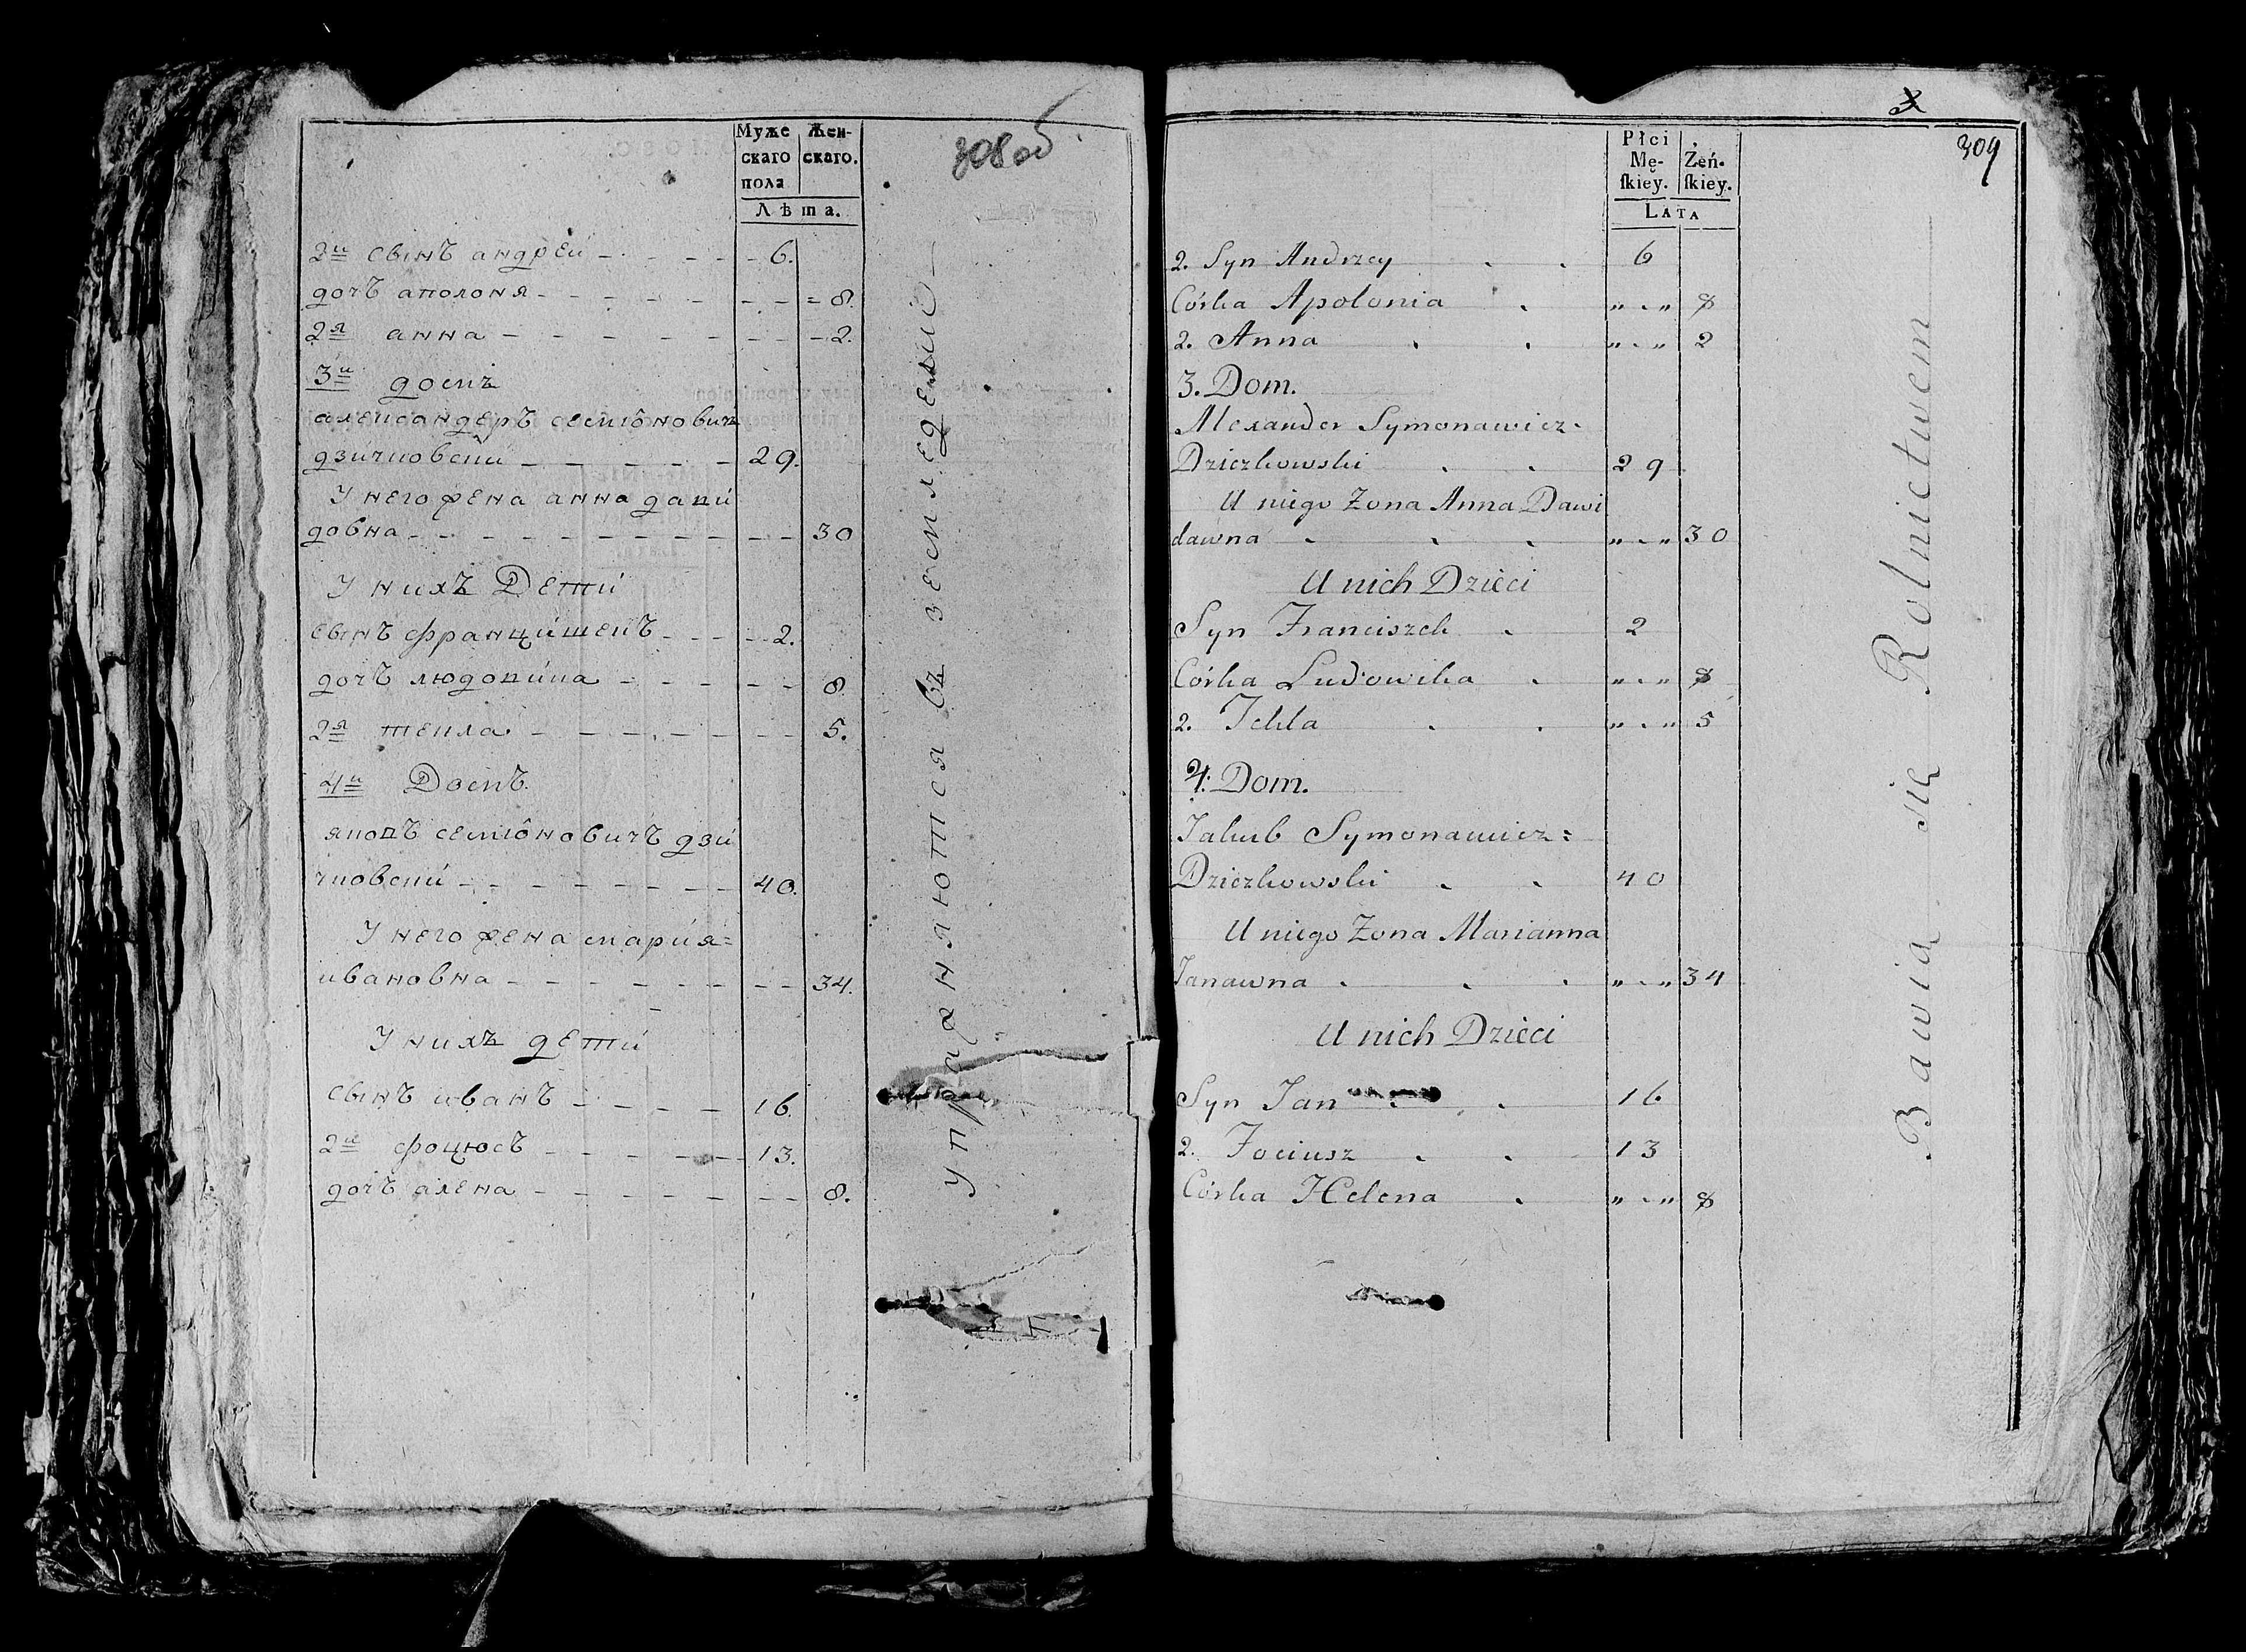 Муже Жен-
скаго скаго.
пола
Лѣта.
308 об
2й сынъ андрей 6.
дочъ аполоня 8.
2я анна 2.
3й домъ
александеръ семіоновичъ
дзичковски 29.
У него жена анна дави
довна 30
У нихъ Дети
сынъ францишекъ 2.
дочъ людовика 8
2я текла 5.
4й Домъ.
якобъ семіоновичъ дзи
чковски 40.
У него жена марія=
ивановна 34.
У нихъ дети
сынъ иванъ 16.
2й фоцюсъ 13.
дочъ алена 8.
упражняются въ земледелие
309
Płci
Mę- Żeń-
ſkiey. ſkiey.
LATA
2. Syn Andrzey 6
Córka Apolonia „ - „ 8
2. Anna „ - „ 2
3. Dom.
Alexander Symonawicz-
Dziczkowski 29
U niego Żona Anna Dawi
dawna „ - „ 30
U nich Dzieci
Syn Franciszek 2
Córka Ludowika „ - „ 8
2. Tekla „ - „ 5
4. Dom.
Jakub Symonawicz=
Dziczkowski 40
U niego Żona Marianna
Janawna „ - „ 34
U nich Dzieci
Syn Jan 16
2. Fociusz 13
Córka Helena „ - „ 8
Bawią się Rolnictwem